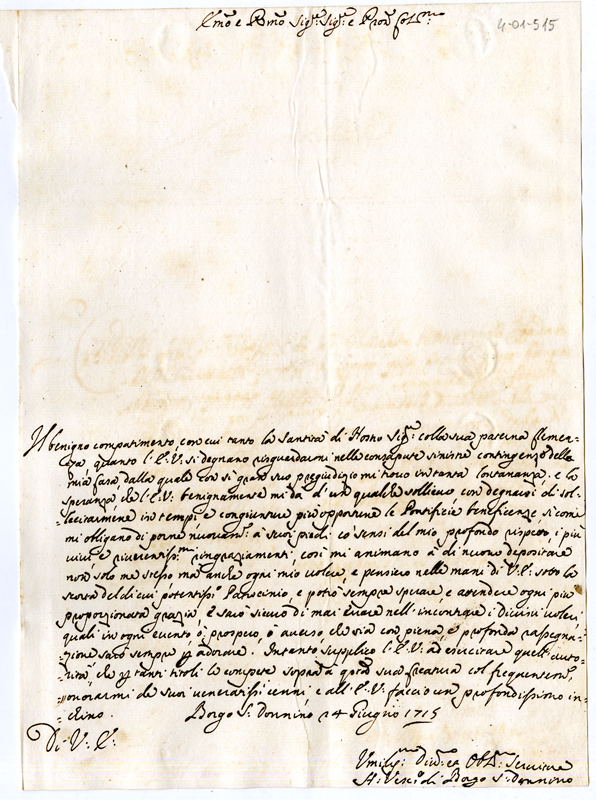 4-01-515
Em͠o e Rm͠o Sig.r Sig.r e Pron Col.mo
Il benigno compatimento, con cui tanto la Santità di Nostro Sig.re colla sua paterna Clemen-
za, quanto l'E.V. si degnano risguardarmi nelle consapute sinistre contingenze della
mia Casa, dalla quale con sì grave suo pregiudizio mi trovo in tanta lontananza, e la
speranza, che l'E.V. benignamente mi dà d'un qualche sollievo, con degnarsi di sol-
lecitarmene in tempi, e congiunture più opportune le Pontificie beneficenze, sì come
mi obligano di porne nuovam.te a' suoi piedi co' sensi del mio profondo rispetto i più
vivi, e riverentiss.mi ringraziamenti, così mi animano à di nuovo depositare
non solo me stesso mà anche ogni mio volere, e pensiero nelle mani di V.E. sotto la
scorta del di cui potentiss.o Patrocinio, e potrò sempre sperare, e attendere ogni più
proporzionata grazia, e sarò sicuro di mai errare nell'incontrare i divini voleri,
quali in ogni evento, ò prospero, ò avverso che sia con piena, e profonda rassegna-
zione sarò sempre p adorare. Intanto supplico l'E.V. ad esercitare quell'auto-
rità, che p tanti titoli le compete sopra di questa sua creatura col frequentem.te
onorarmi de' suoi veneratissi cenni, e all'E.V. faccio un profondissimo in-
chino. Borgo S. Donnino 14 Giugno 1715
Di V. E.
Umiliss.mo Div.mo ed Obl.mo Servitore
Il Vesc.o di Borgo S. Donnino